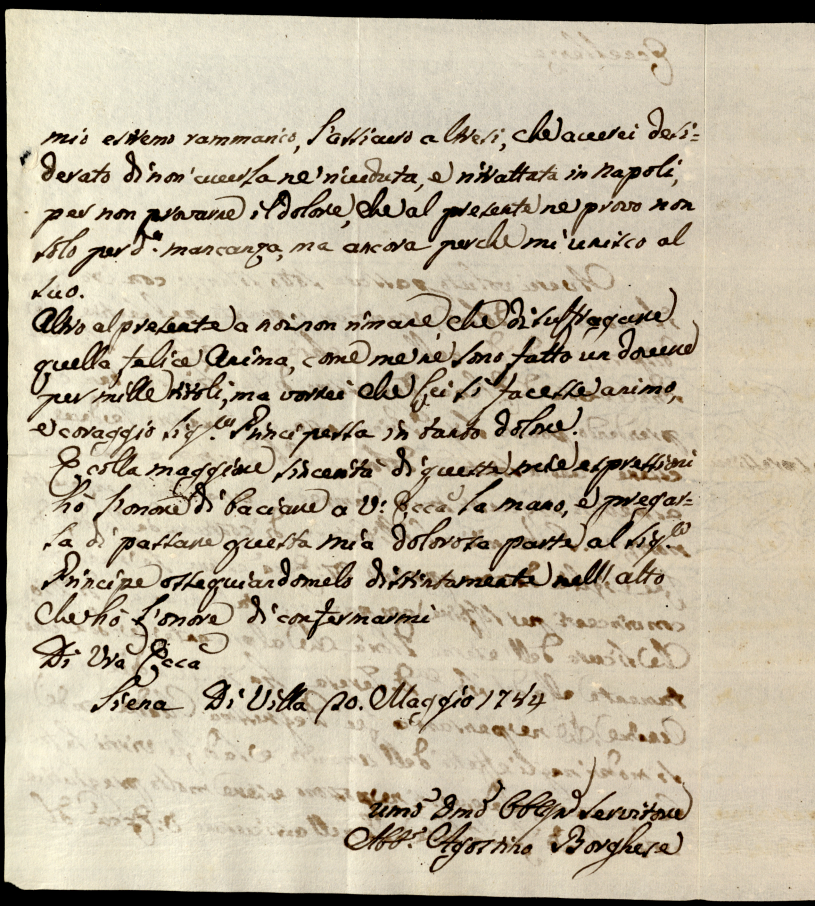 mio estremo rammarico, l'assicuro altresi, che averei desi=
derato di non averla ne riceduta, e ritrattata in Napoli,
per non provarne il dolore, che al presente ne provo non
solo per d.ª mancanza, ma ancora perche mi unisco al
suo.
Altro al presente a noi non rimane che di suffragare
quella felice Anima, come me ne sono fatto un dovere
per mille titoli, ma vorrei che Lei si facesse animo,
e coraggio Sig.ra Principessa in tanto dolore.
E colla maggiore sincerità di queste mie espressioni
hò l'onore di baciare a V: Ecca la mano, e pregar=
la di passare questa mia dolorosa parte al Sig.re
Principe ossequiandomelo distintamente nell'atto
che hò l'onore di confermarmi
Di Vra Ecca
Siena Di Villa 20. Maggio 1744
Umo Dmo Obbmo Servitore
Abb.e Agostino Borghese